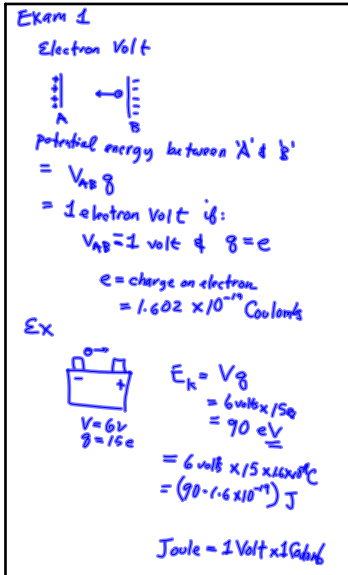 Exam 1
Electron Volt
+ + + +
A
B
potential energy between 'A' & 'B'
= V_AB q
= 1 electron Volt if:
V_AB = 1 volt & q = e
e = charge on electron
= 1.602 × 10⁻¹⁹ Coulombs
Ex
- +
V = 6V
q = 15e
E_k = Vq
= 6 volts × 15e
= 90 eV
= 6 volts × 15 × 1.6 × 10⁻¹⁹ C
= (90 · 1.6 × 10⁻¹⁹) J
Joule = 1 Volt × 1 Coulomb